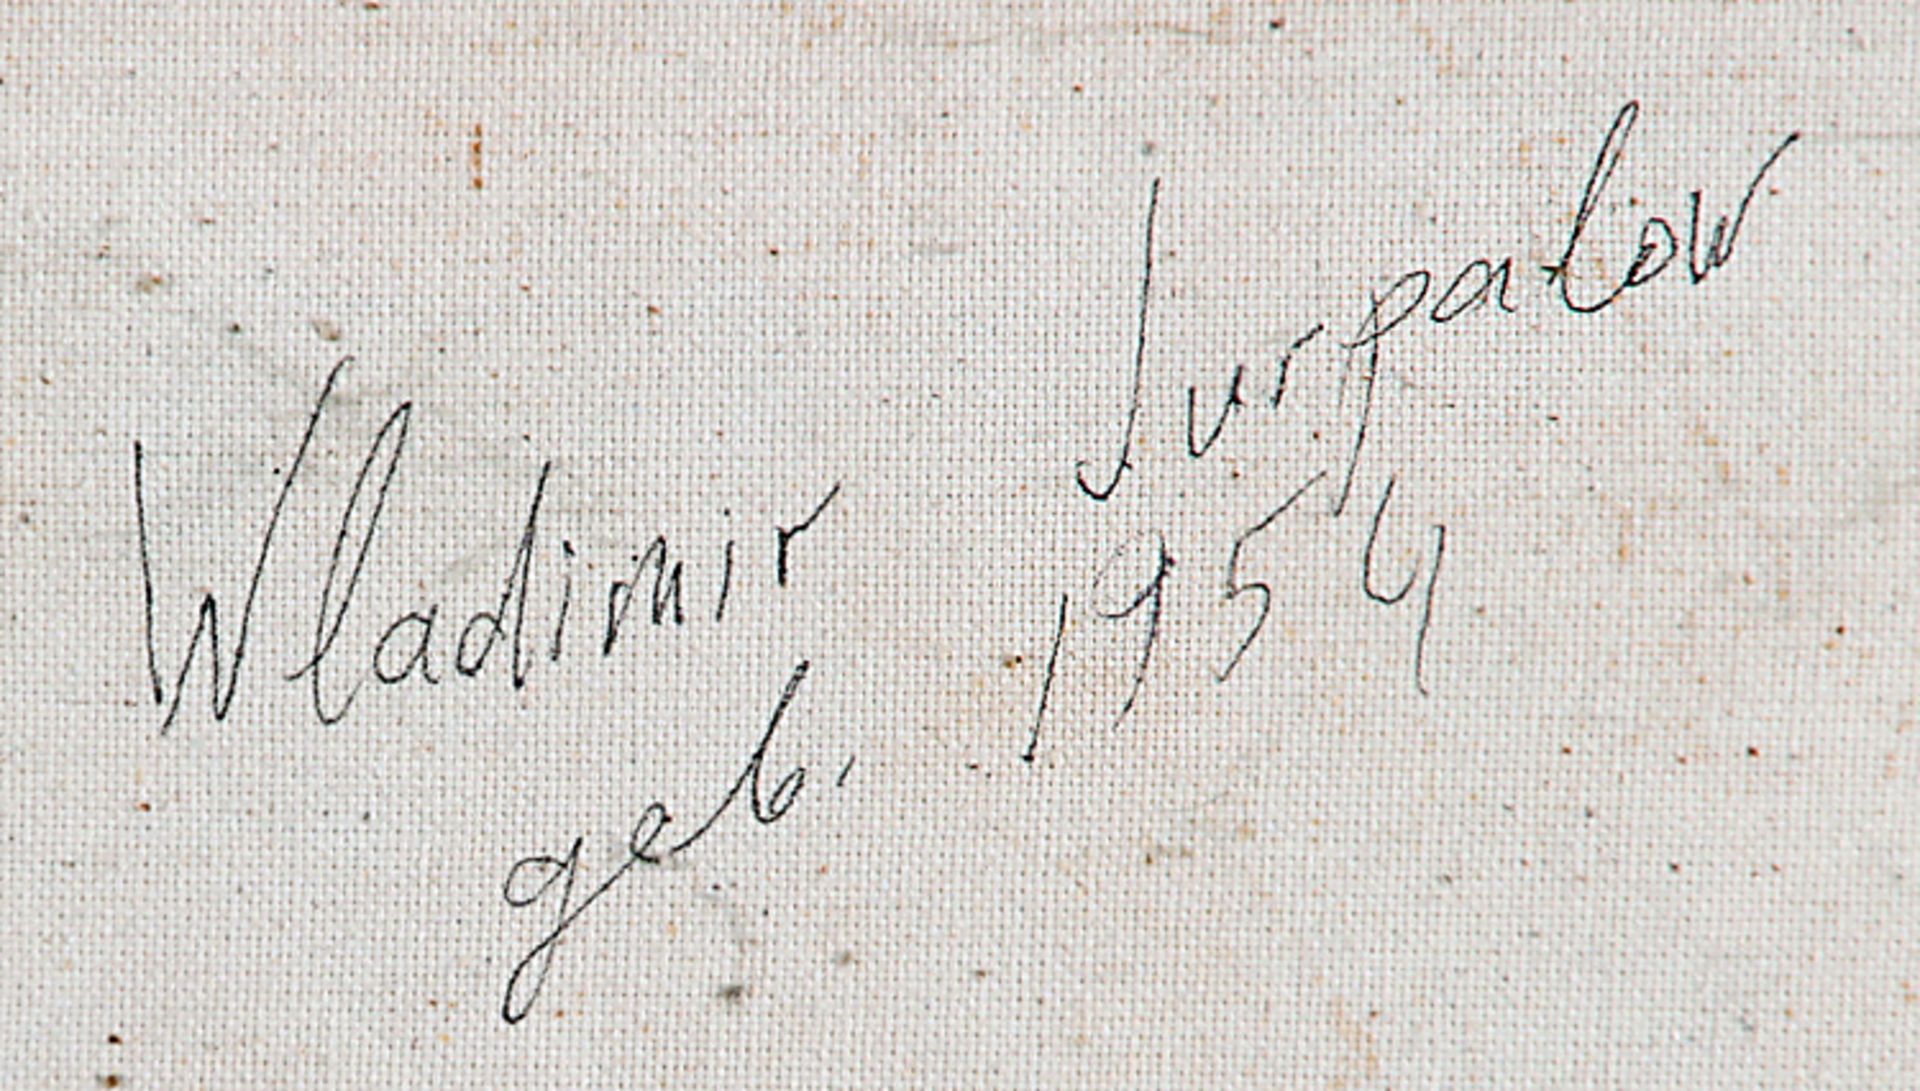 Wladimir Jurpalow
geb. 1954